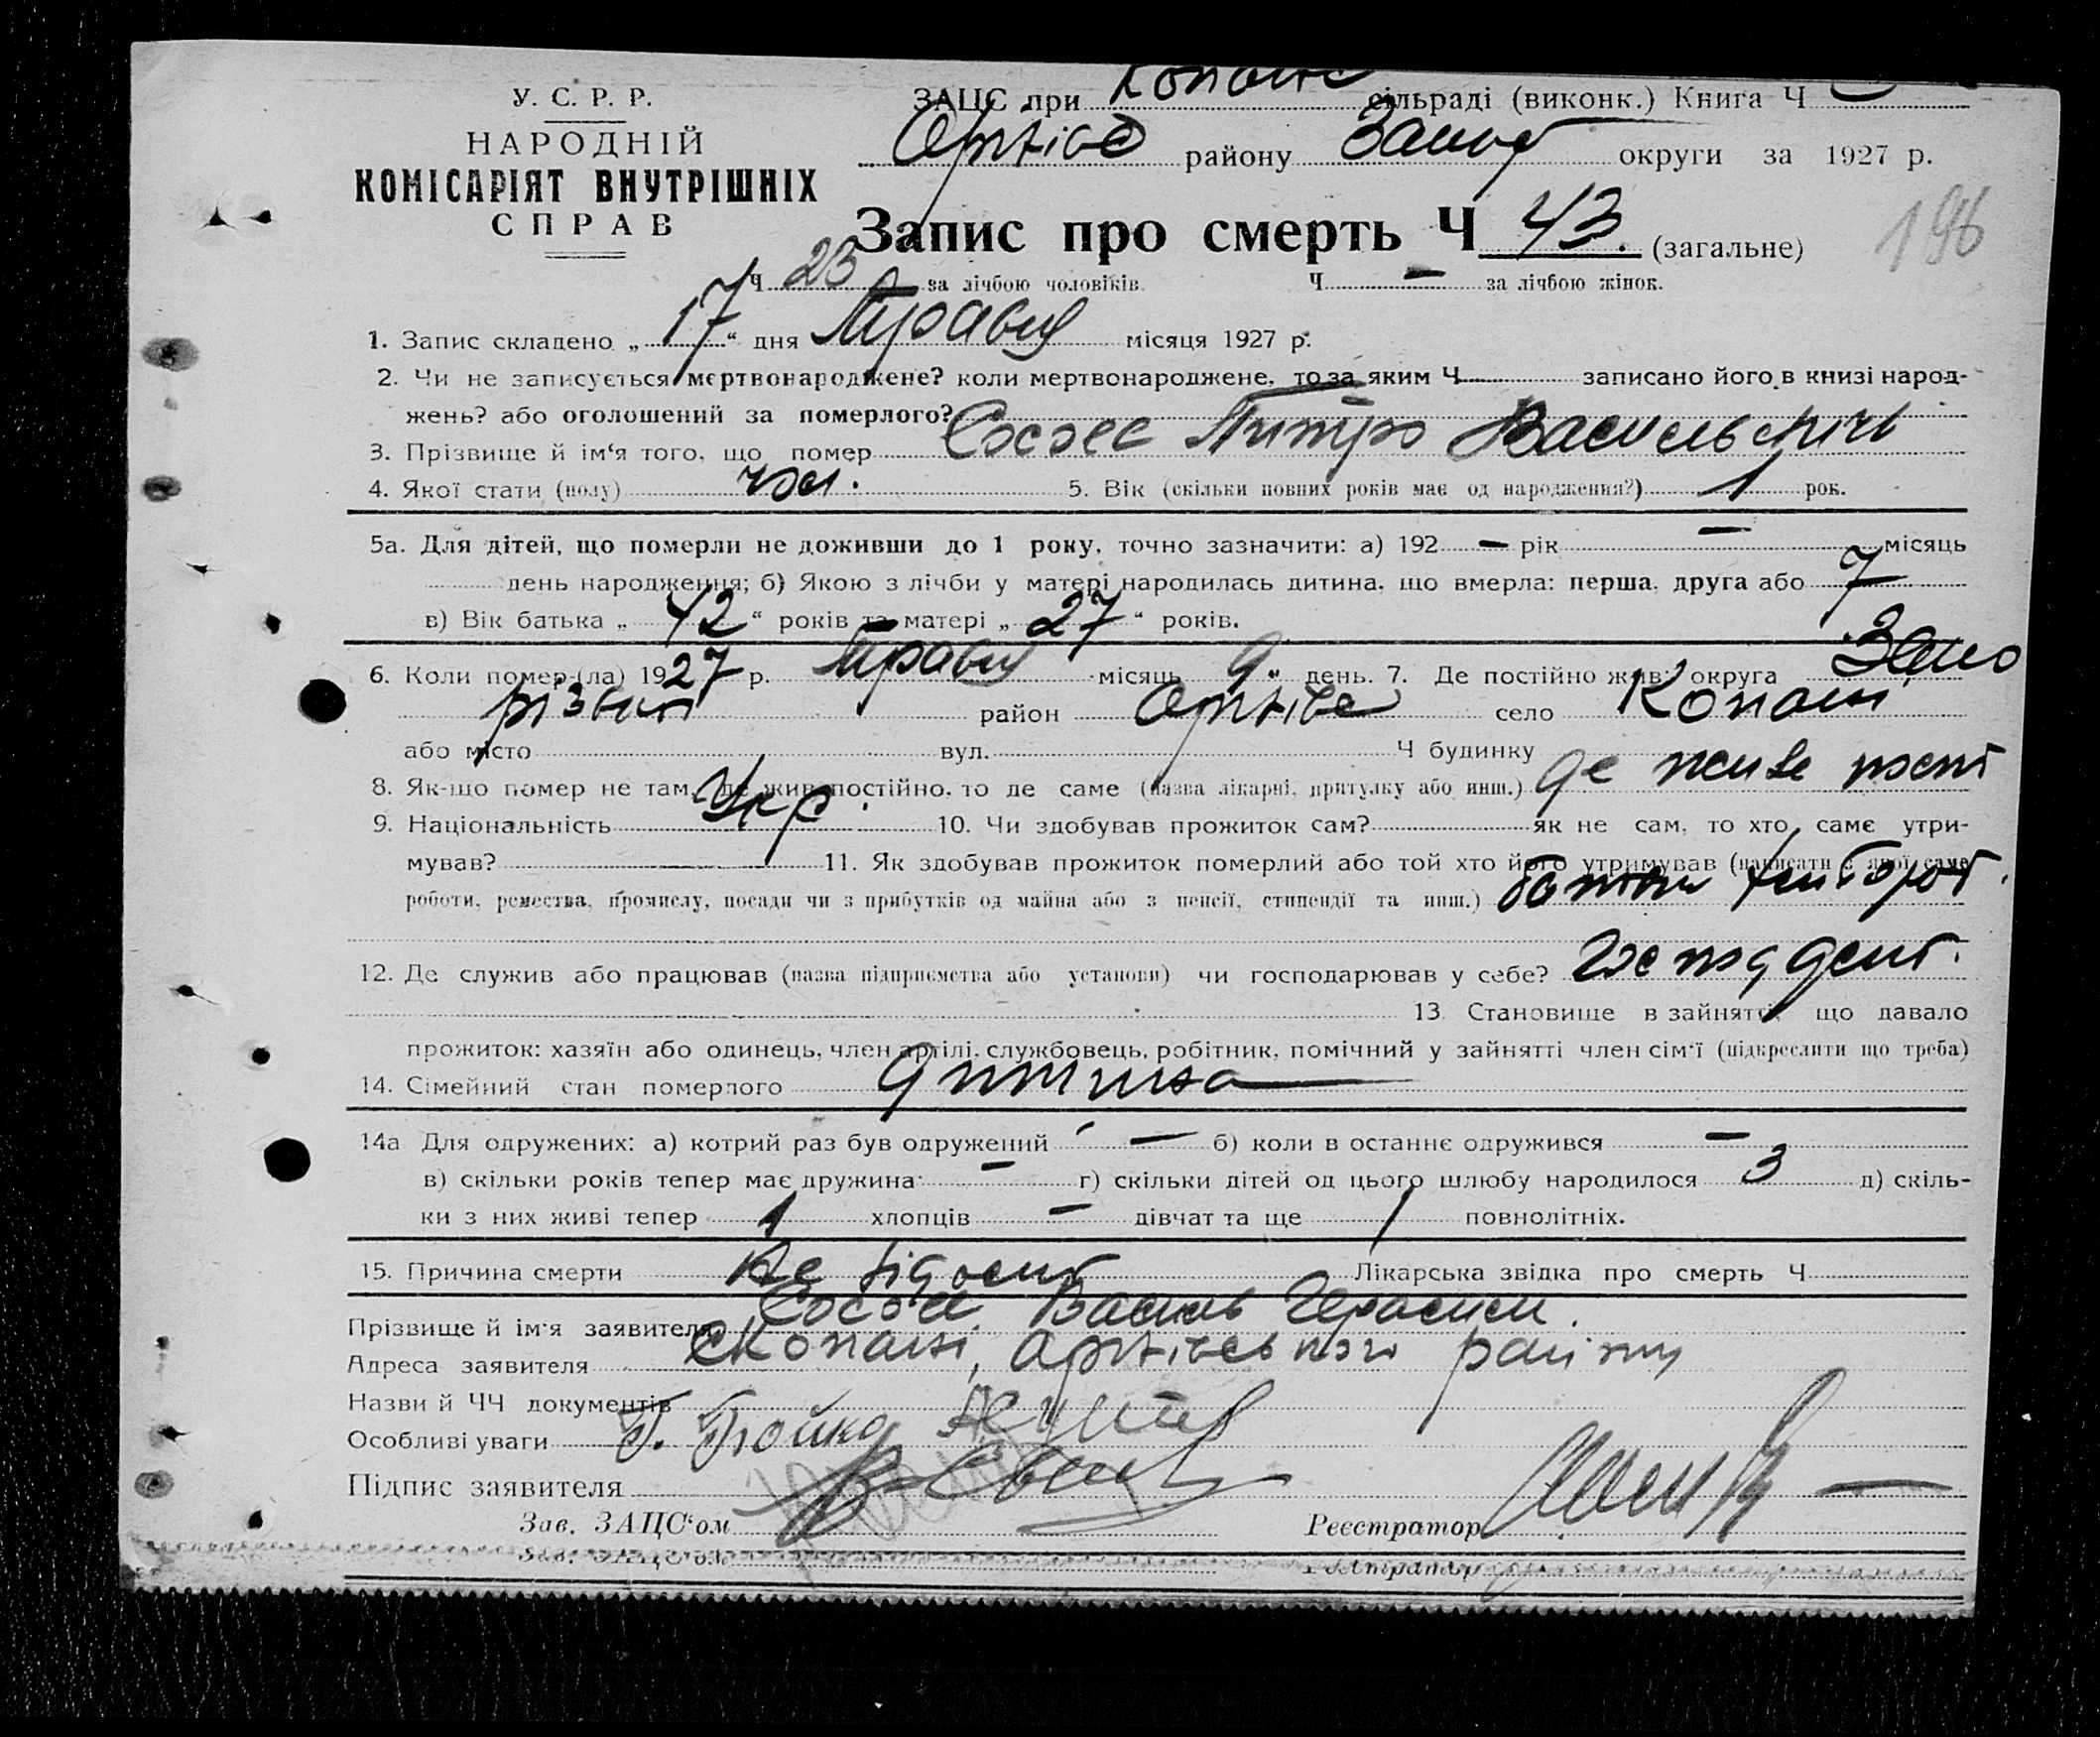 У. С. Р. Р.
НАРОДНІЙ
КОМІСАРІЯТ ВНУТРІШНІХ
СПРАВ
ЗАЦС при Копани сільраді (виконк.) Книга Ч
Оріхів району Запор округи за 1927 р.
Запис про смерть Ч 43. (загальне)
196
Ч 23 за лічбою чоловіків. Ч — за лічбою жінок.
1. Запис складено „ 17 “ дня Травня місяця 1927 р.
2. Чи не записується мертвонароджене? коли мертвонароджене, то за яким Ч записано його в книзі народ-
жень? або оголошений за померлого?
3. Прізвище й ім‘я того, що помер Петро Васильович
4. Якої стати (полу) чол. 5. Вік (скільки повних років має од народження?) 1 рок.
5а. Для дітей, що померли не доживши до 1 року, точно зазначити: а) 192 — рік — місяць
день народження; б) Якою з лічби у матері народилась дитина, що вмерла: перша, друга або 7
в) Вік батька „ 42 “ років та матері „ 27 “ років.
6. Коли помер (ла) 1927 р. Травня місяць 9 „ день. 7. Де постійно жив: округа Запо
різька район Оріхів село Копани
або місто вул. Ч будинку
8. Як-що помер не там, де жив постійно, то де саме (назва лікарні, притулку або инш.) де живе пост
9. Національність Укр. 10. Чи здобував прожиток сам? як не сам, то хто саме утри-
мував? 11. Як здобував прожиток померлий або той хто його утримував (написати з якої саме
роботи, ремества, промислу, посади чи з прибутків од майна або з пенсії, стипендії та инш.) батьки хлібороб.
12. Де служив або працював (назва підприємства або установи) чи господарював у себе?
13. Становище в зайнятті, що давало
прожиток: хазяїн або одинець, член артілі, службовець, робітник, помічний у зайнятті член сім‘ї (підкреслити що треба)
14. Сімейний стан померлого дитина
14а Для одружених: а) котрий раз був одружений — б) коли в останнє одружився —
в) скільки років тепер має дружина: — г) скільки дітей од цього шлюбу народилося 3 д) скіль-
ки з них живі тепер 1 хлопців — дівчат та ще / повнолітніх.
15. Причина смерти не відома Лікарська звідка про смерть Ч
Прізвище й ім‘я заявителя Василь Герасим.
Адреса заявителя с Копани, Оріхівського району
Назви й ЧЧ документів
Особливі уваги
Підпис заявителя
Зав. ЗАЦС‘ом Реєстратор